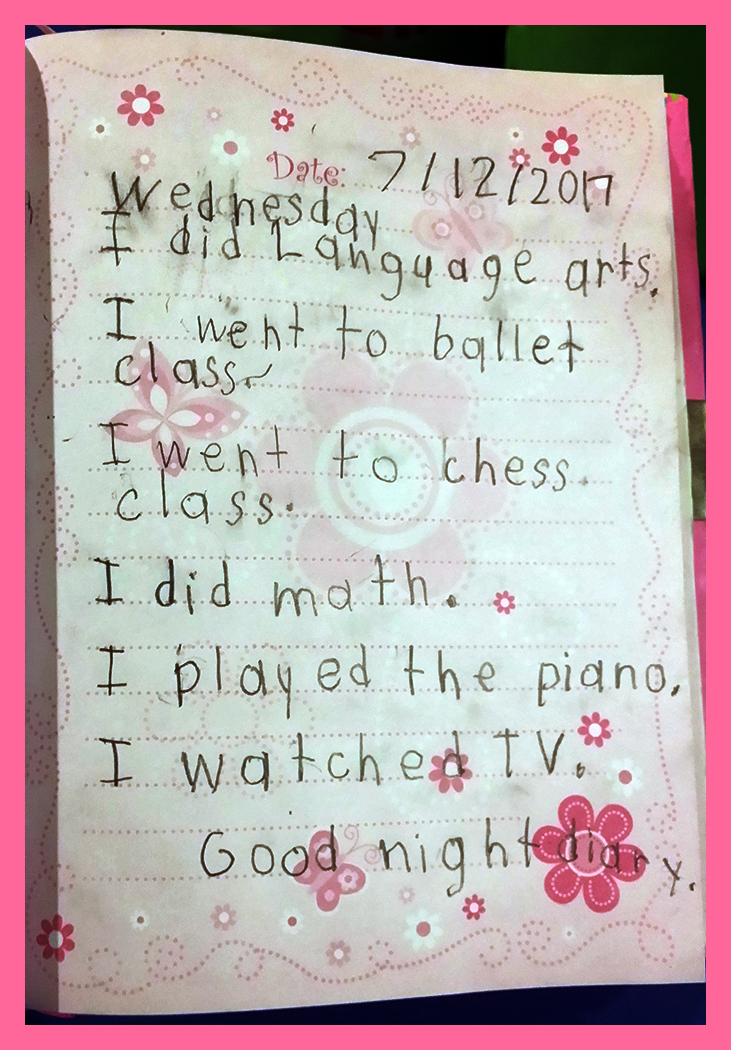 Date: 7/12/2017
Wednesday
I did Language arts.
I went to ballet
class.
I went to chess
class.
I did math.
I played the piano.
I watched TV.
Good night diary.